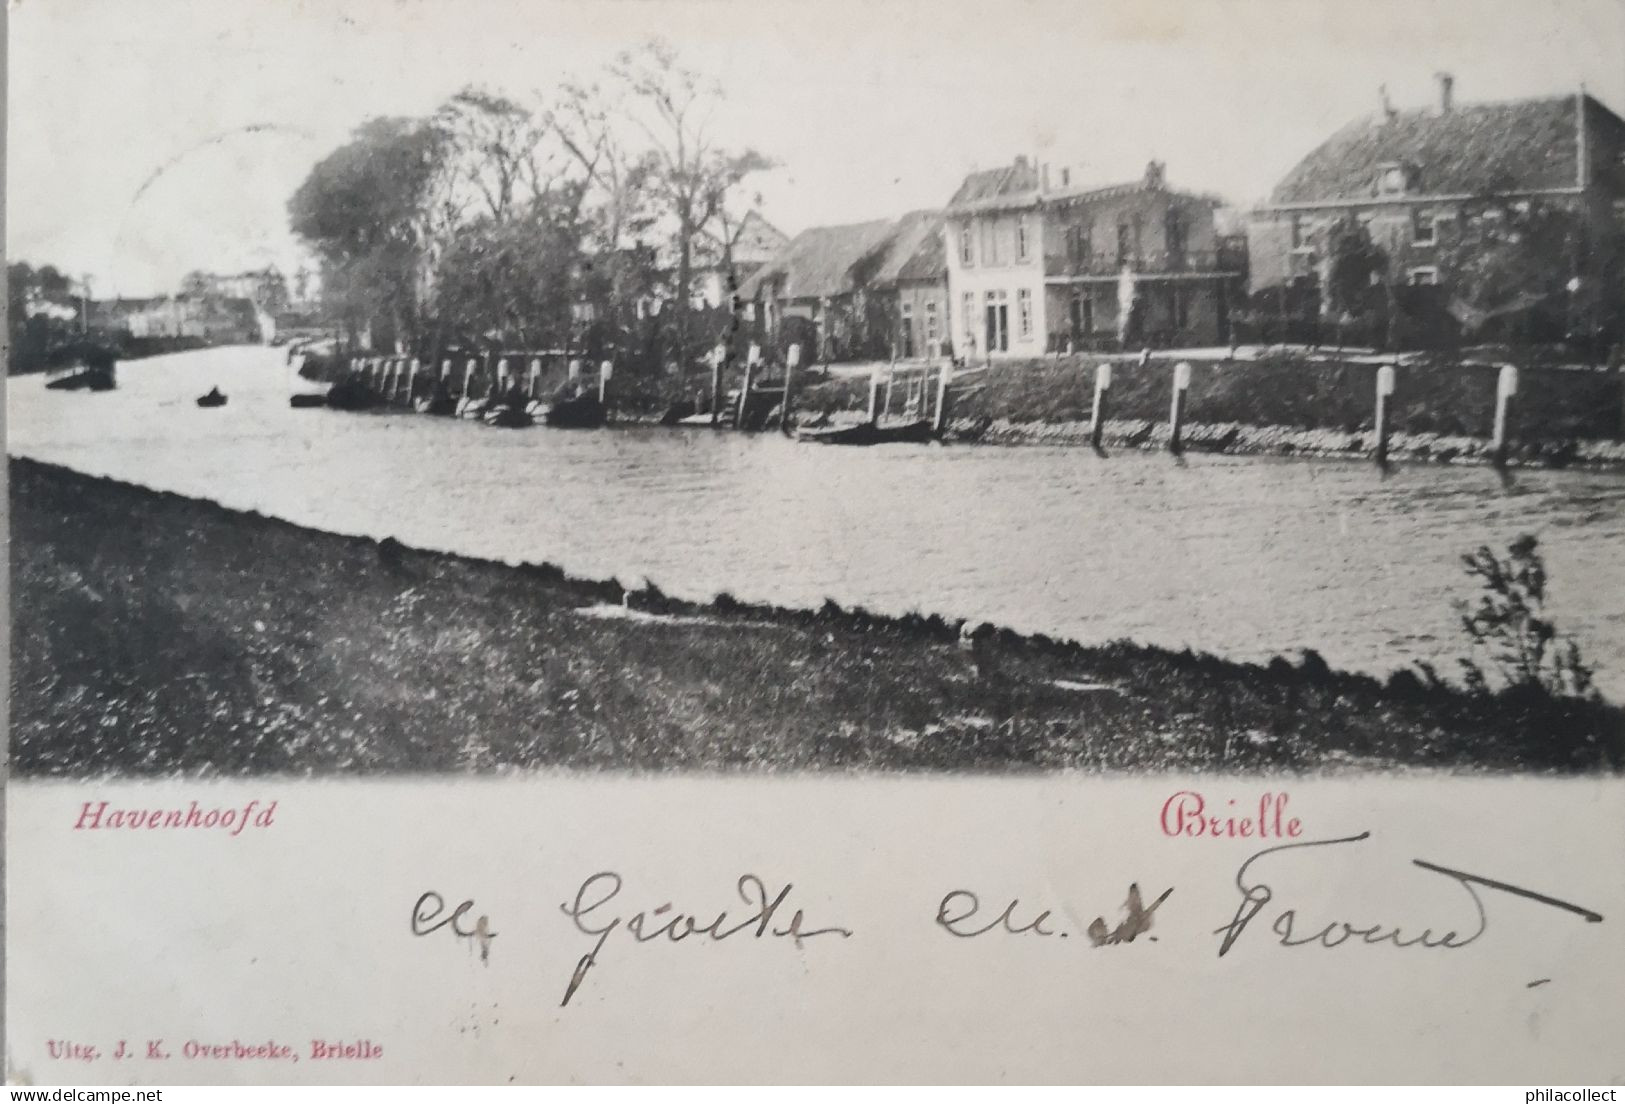 Havenhoofd
Brielle
de Groeten
Uitg. J. K. Overbeeke, Brielle
delcampe.net
philacollect